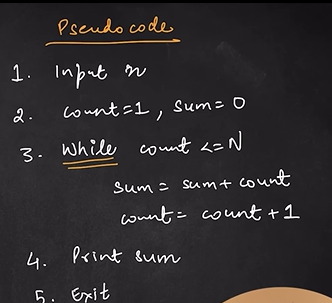 Pseudocode
1. Input n
2. count=1, sum=0
3. While count <= N
sum = sum + count
count = count + 1
4. Print sum
5. Exit